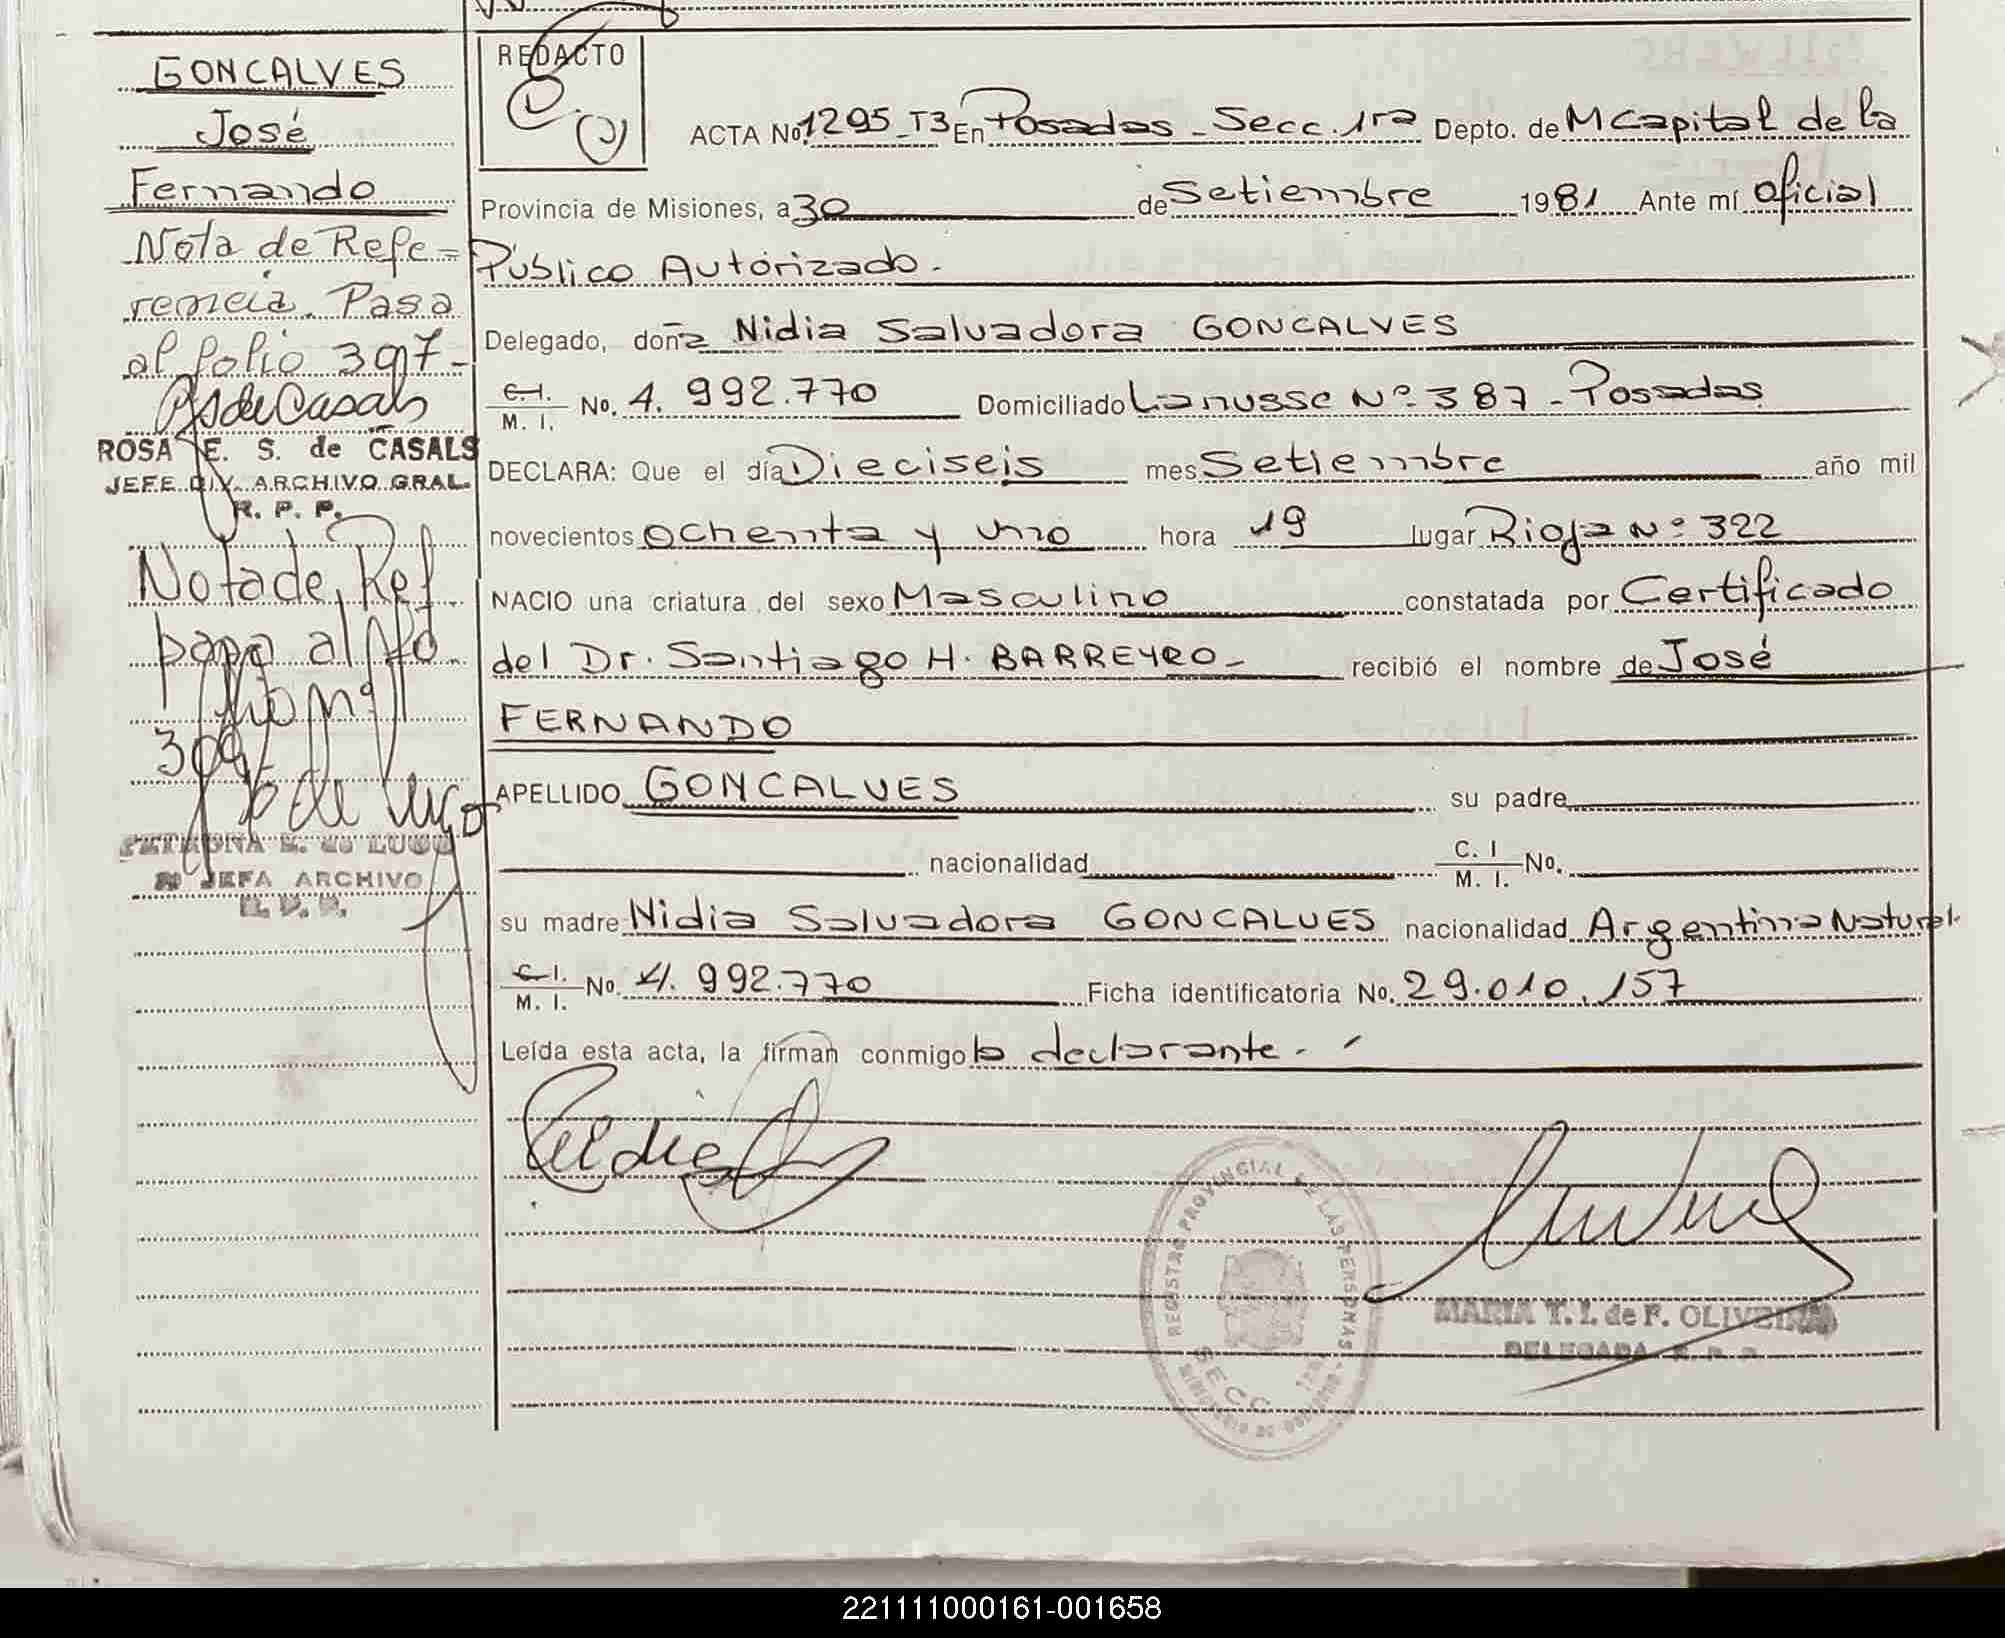 GONCALVES
José
Fernando
Nota de Refe=
rencia. Pasa
al folio 397-
ROSA E. S. de CASALS
JEFE DIV. ARCHIVO GRAL.
R. P. P.
Nota de Ref
pasa al
PETRONA E. de LUGO
JEFA ARCHIVO
R. P. P.
REDACTO
ACTA No. 1295_T3 En Posadas - Secc. 1ra Depto. de M Capital de la
Provincia de Misiones, a 30 de Setiembre 1981 Ante mí Oficial
Público Autorizado.
Delegado, doña Nidia Salvadora GONCALVES
C.I. M. I. No. 4.992.770 Domiciliado Lanusse Nº 387 - Posadas
DECLARA: Que el día Dieciseis mes Setiembre año mil
novecientos ochenta y uno hora 19 lugar Rioja Nº 322
NACIO una criatura del sexo Masculino constatada por Certificado
del Dr. Santiago H. BARREYRO_ recibió el nombre de José
FERNANDO
APELLIDO GONCALVES su padre
nacionalidad C. I M. I. No.
su madre Nidia Salvadora GONCALVES nacionalidad Argentina Natural
C.I. M. I. No. 4.992.770 Ficha identificatoria No. 29.010.157
Leída esta acta, la firman conmigo la declarante.
REGISTRO PROVINCIAL DE LAS PERSONAS
SECC. 1ra
MINISTERIO DE GOBIERNO
MARIA T. I. de F. OLIVEIRA
DELEGADA R. P. P.
221111000161-001658